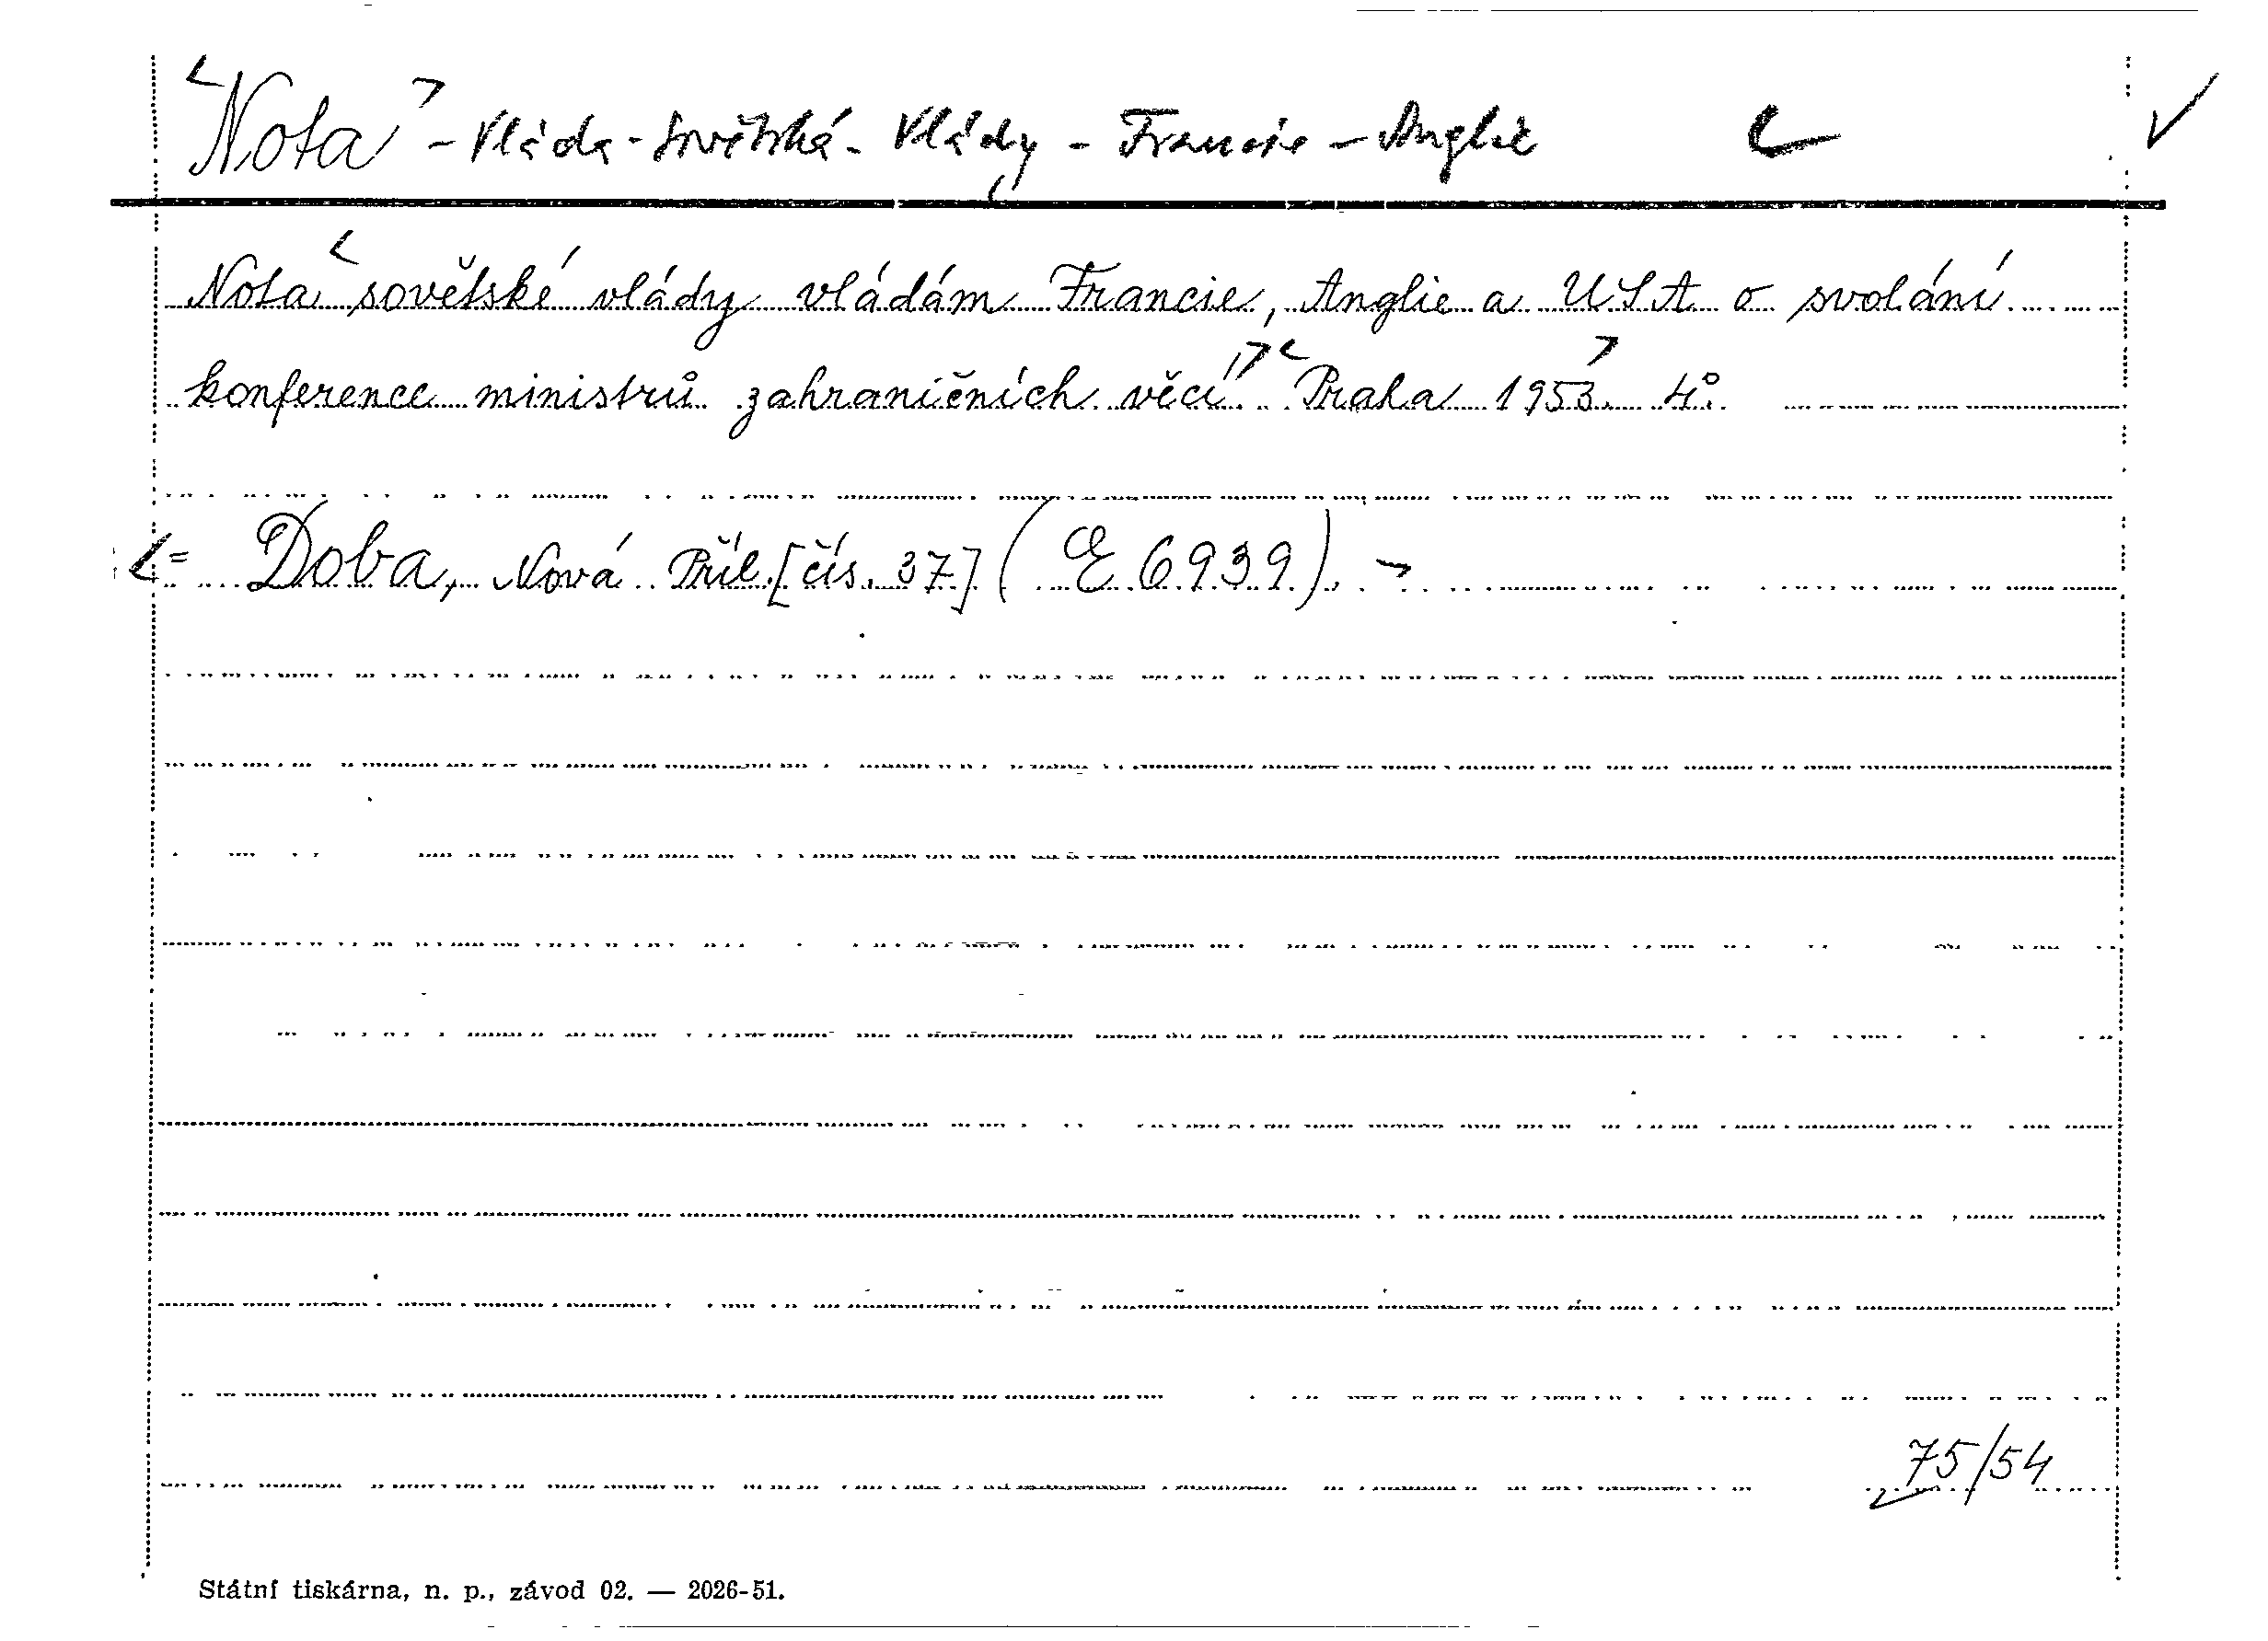 Nota - Vláda - Sovětská - Vlády - Francie - Anglie
Nota sovětské vlády vládám Francie, Anglie a USA o svolání
konference ministrů zahraničních věcí. Praha 1953. 4°.
= Doba, Nová Příl. [čís. 37] (E 6939).
75/54
Státní tiskárna, n. p., závod 02. — 2026-51.